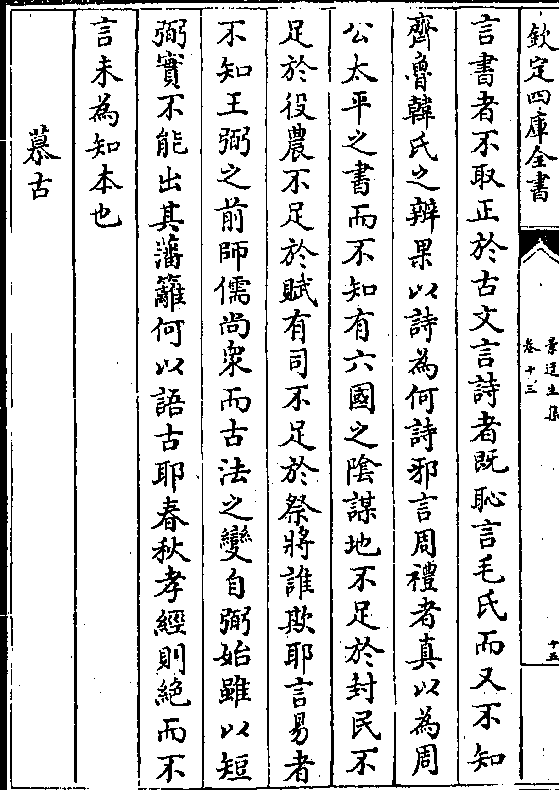 欽定四庫全書
景迂生集
卷十三
十五
言書者不取正於古文言詩者既恥言毛氏而又不知
齊魯韓氏之辨果以詩為何詩邪言周禮者真以為周
公太平之書而不知有六國之陰謀地不足於封民不
足於役農不足於賦有司不足於祭將誰欺耶言易者
不知王弼之前師儒尚衆而古法之變自弼始雖以短
弼實不能出其藩籬何以語古耶春秋孝經則絶而不
言未為知本也
慕古